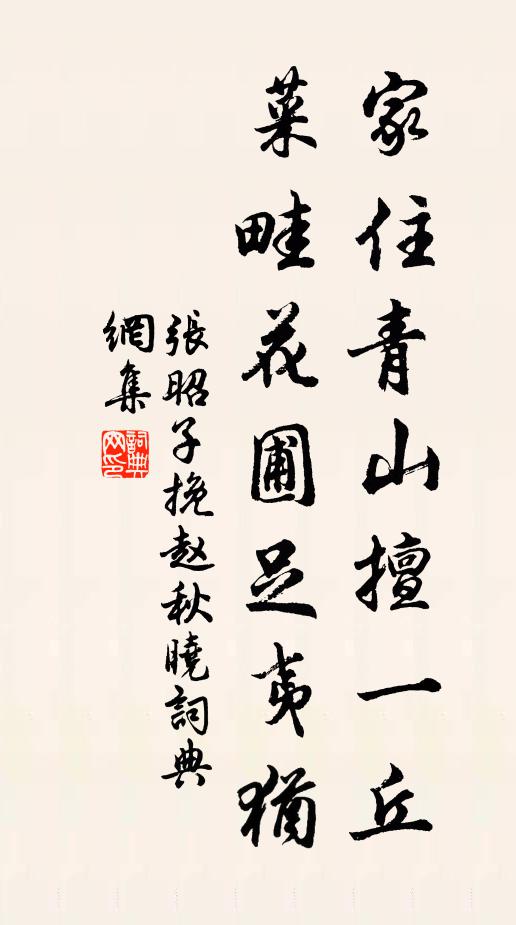 家住青山擅一丘
菜畦花圃足夷猶
張昭子挽赵秋曉詞典
網集
詞典網印